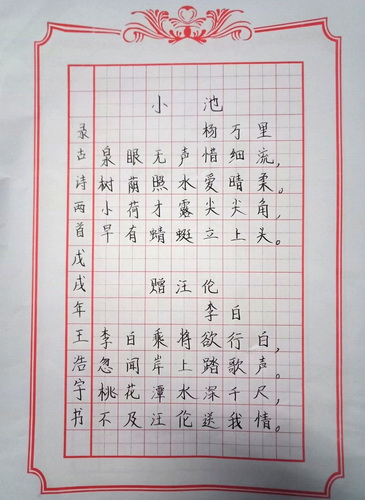 小池
杨万里
泉眼无声惜细流，
树荫照水爱晴柔。
小荷才露尖尖角，
早有蜻蜓立上头。
赠汪伦
李白
李白乘将欲行白，
忽闻岸上踏歌声。
桃花潭水深千尺，
不及汪伦送我情。
录古诗两首戊戌年王浩宇书